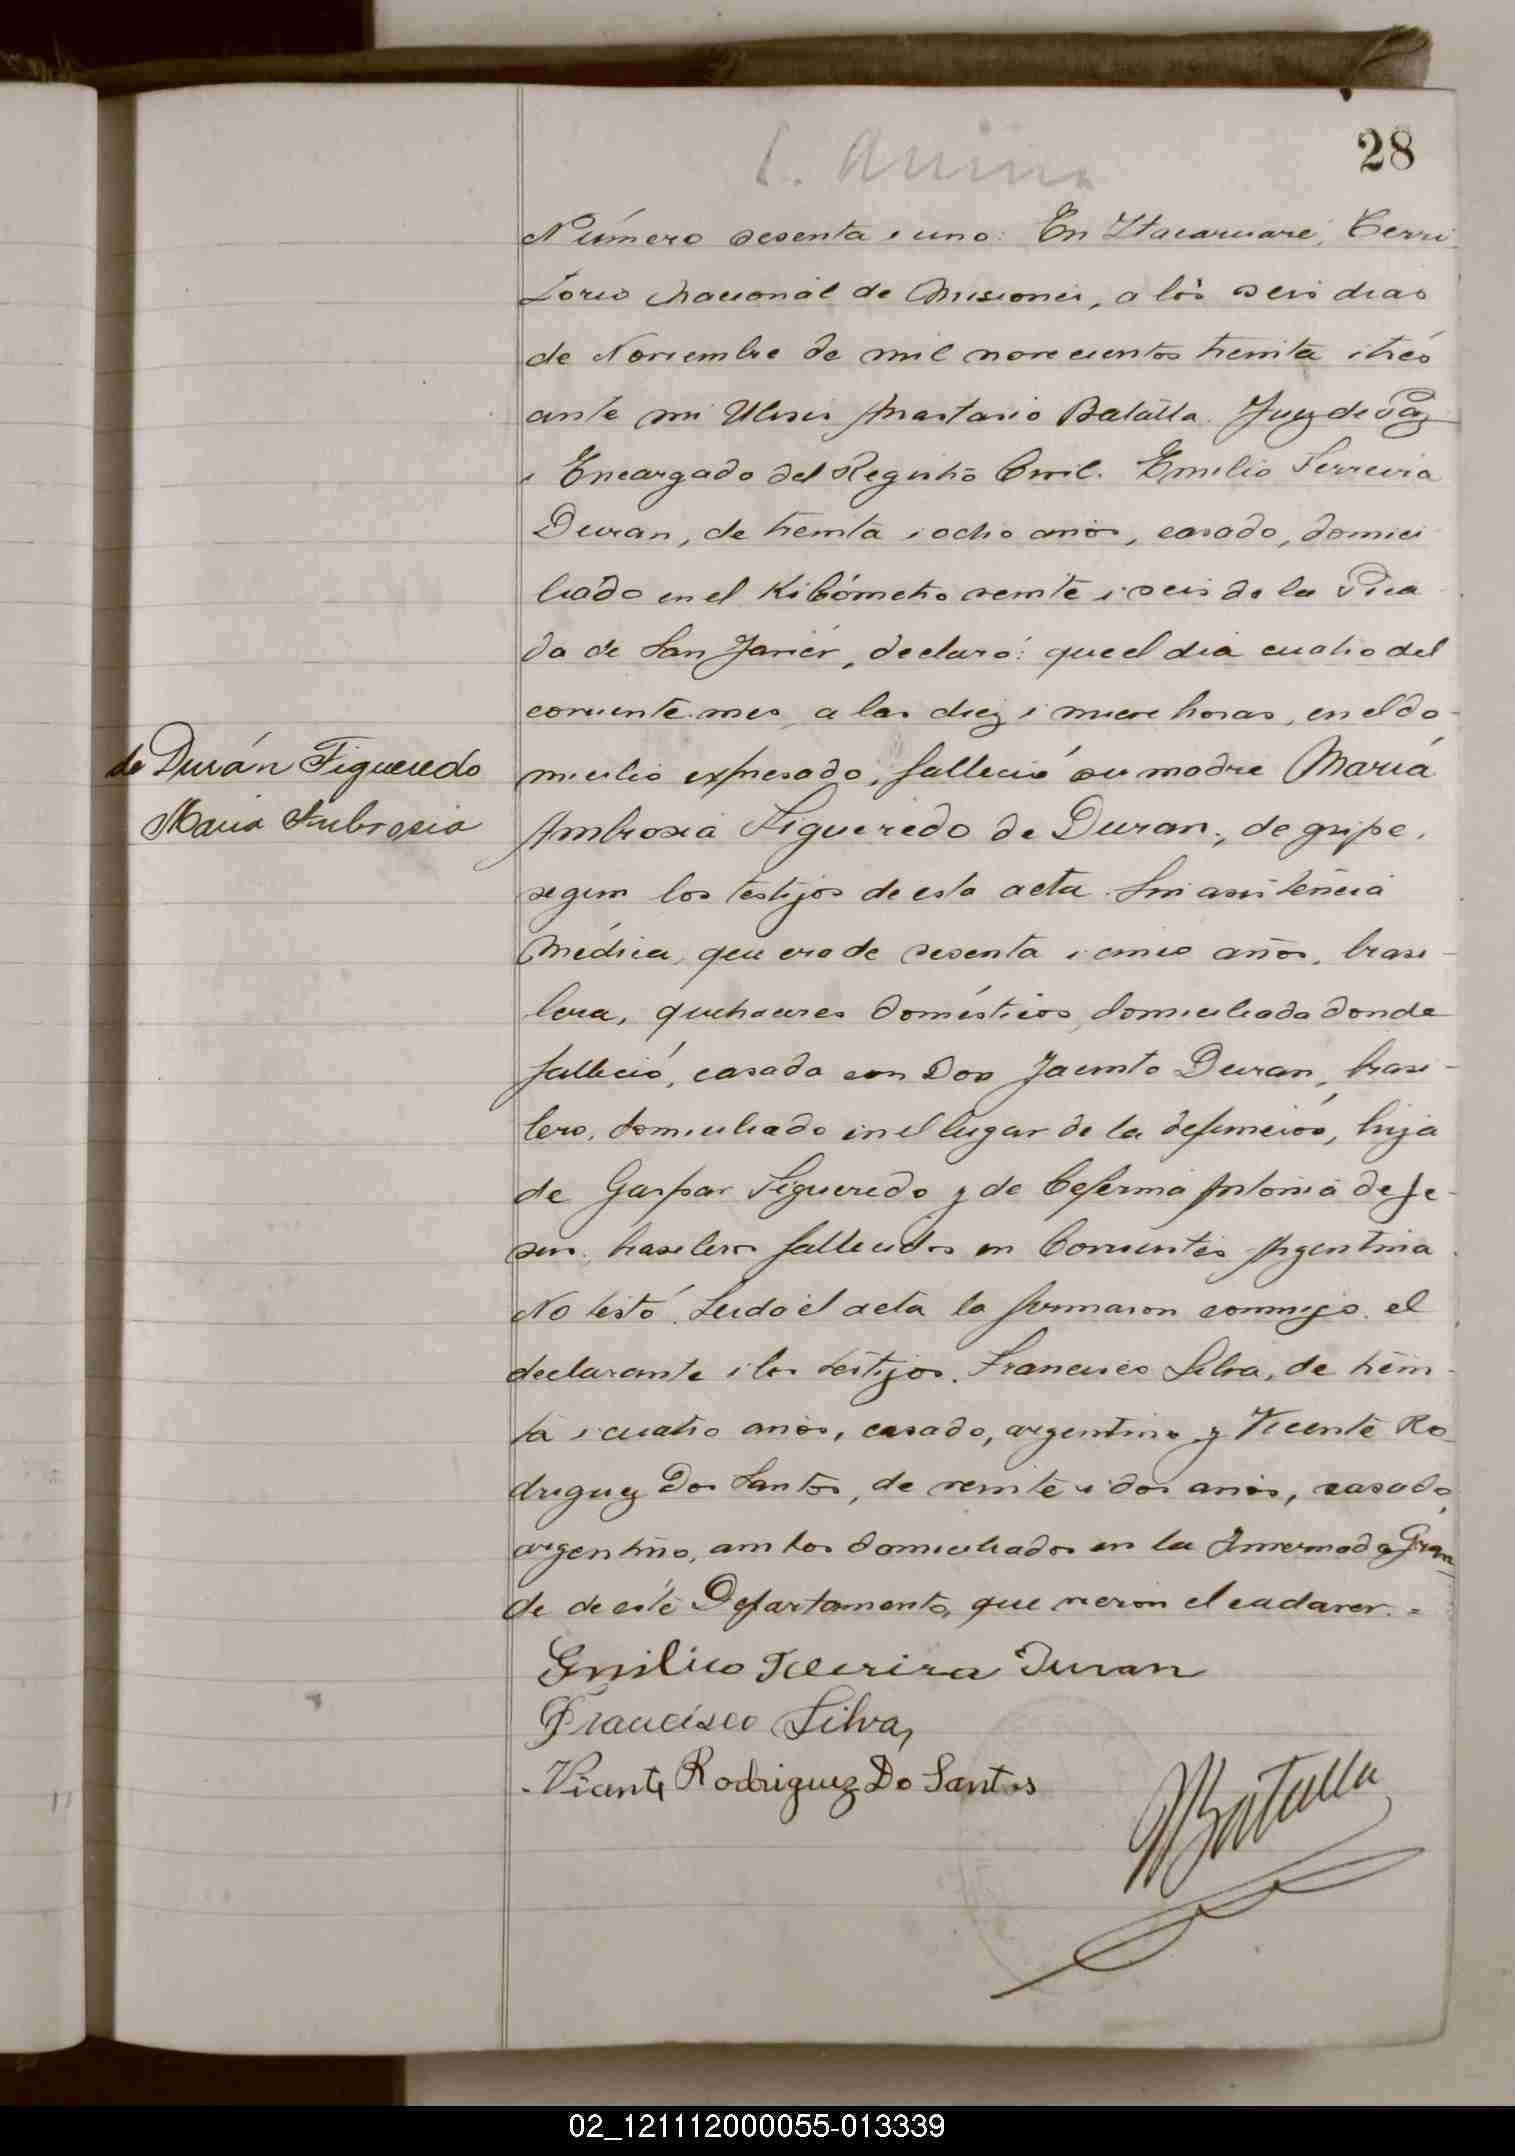 28
Número sesenta i uno: En Itacaruaré, Terri
torio Nacional de Misiones, a los seis dias
de Noviembre de mil novecientos treinta i trés
ante mi Ulises Anastasio Batalla. Juez de Paz
i Encargado del Registro Civil. Emilio Ferreira
Duran, de treinta i ocho años, casado, domici
liado en el Kilómetro veinte i seis de la Pica
da de San Javier, declaró: que el dia cuatro del
corriente mes, a las diez i nueve horas, en el do-
micilio expresado, falleció su madre María
de Durán Figueredo
Maria Ambrosia
Ambrosia Figueredo de Duran, de gripe,
segun los testijos de esta acta. Sin asistencia
Médica, que era de sesenta i cinco años, brasi-
lera, quehaceres domésticos, domiciliada donde
falleció, casada con Don Jacinto Duran, brasi-
lero, domiciliado en el lugar de la defunción, hija
de Gaspar Figueredo y de Ceferina Antonia de Je-
sus, brasileros fallecidos en Corrientes Argentina.
No testó. Leida el acta la firmaron conmigo el
declarante i los testijos. Francisco Silva, de trein-
ta i cuatro años, casado, argentino y Vicente Ro
driguez Dos Santos, de veinte i dos años, casado,
argentino, ambos domiciliados en la Invernada Gran
de de esté Departamento, que vieron el cadaver. =
Emilio Ferreira Duran
Francisco Silva,
Vicente Rodriguez Do Santos
Batalla
02_121112000055-013339